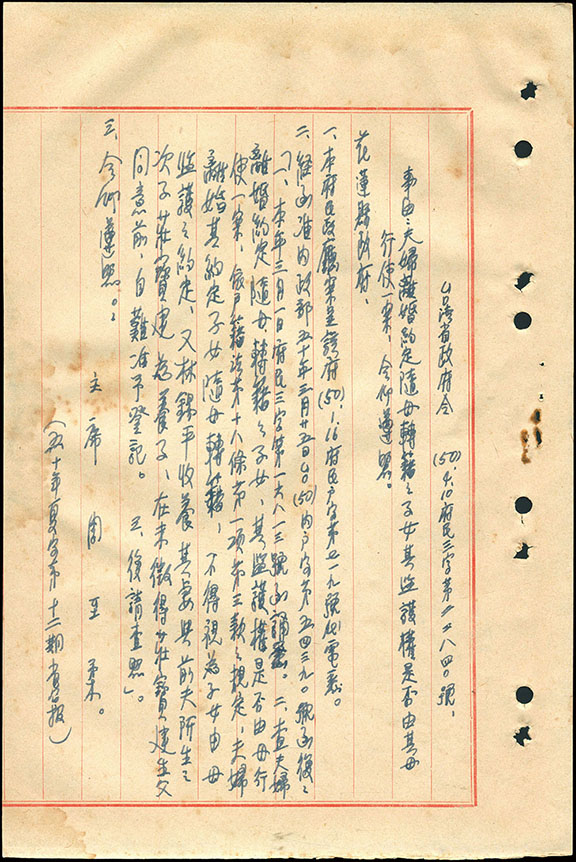 台灣省政府令　(50).4.10府民三字第二二八四〇號、
事由：夫婦離婚約定隨母轉籍之子女其監護權是否由其母
行使一案，令仰遵照。
花蓮縣政府、
一、本府民政廳案呈該府(50).1.16府民戶字第七一九號代電悉。
二、經函准內政部五十年三月廿五日台(50)內戶字第五四三九〇號函復：
「一、本年三月一日府民三字第一六八一三號函誦悉。二、查夫婦
離婚約定隨母轉籍之子女，其監護權是否由母行
使一案，依戶籍法第十八條第一項第三款之規定，夫婦
離婚其約定子女隨母轉籍，不得視為子女由母
監護之約定，又林錦平收養其妻與前夫所生之
次子莊寶建為養子，在未徵得莊寶建生父
同意前，自難准予登記。三、復請查照」。
三、令仰遵照。
主席　周至柔。
(五十年夏字第十二期省公報)